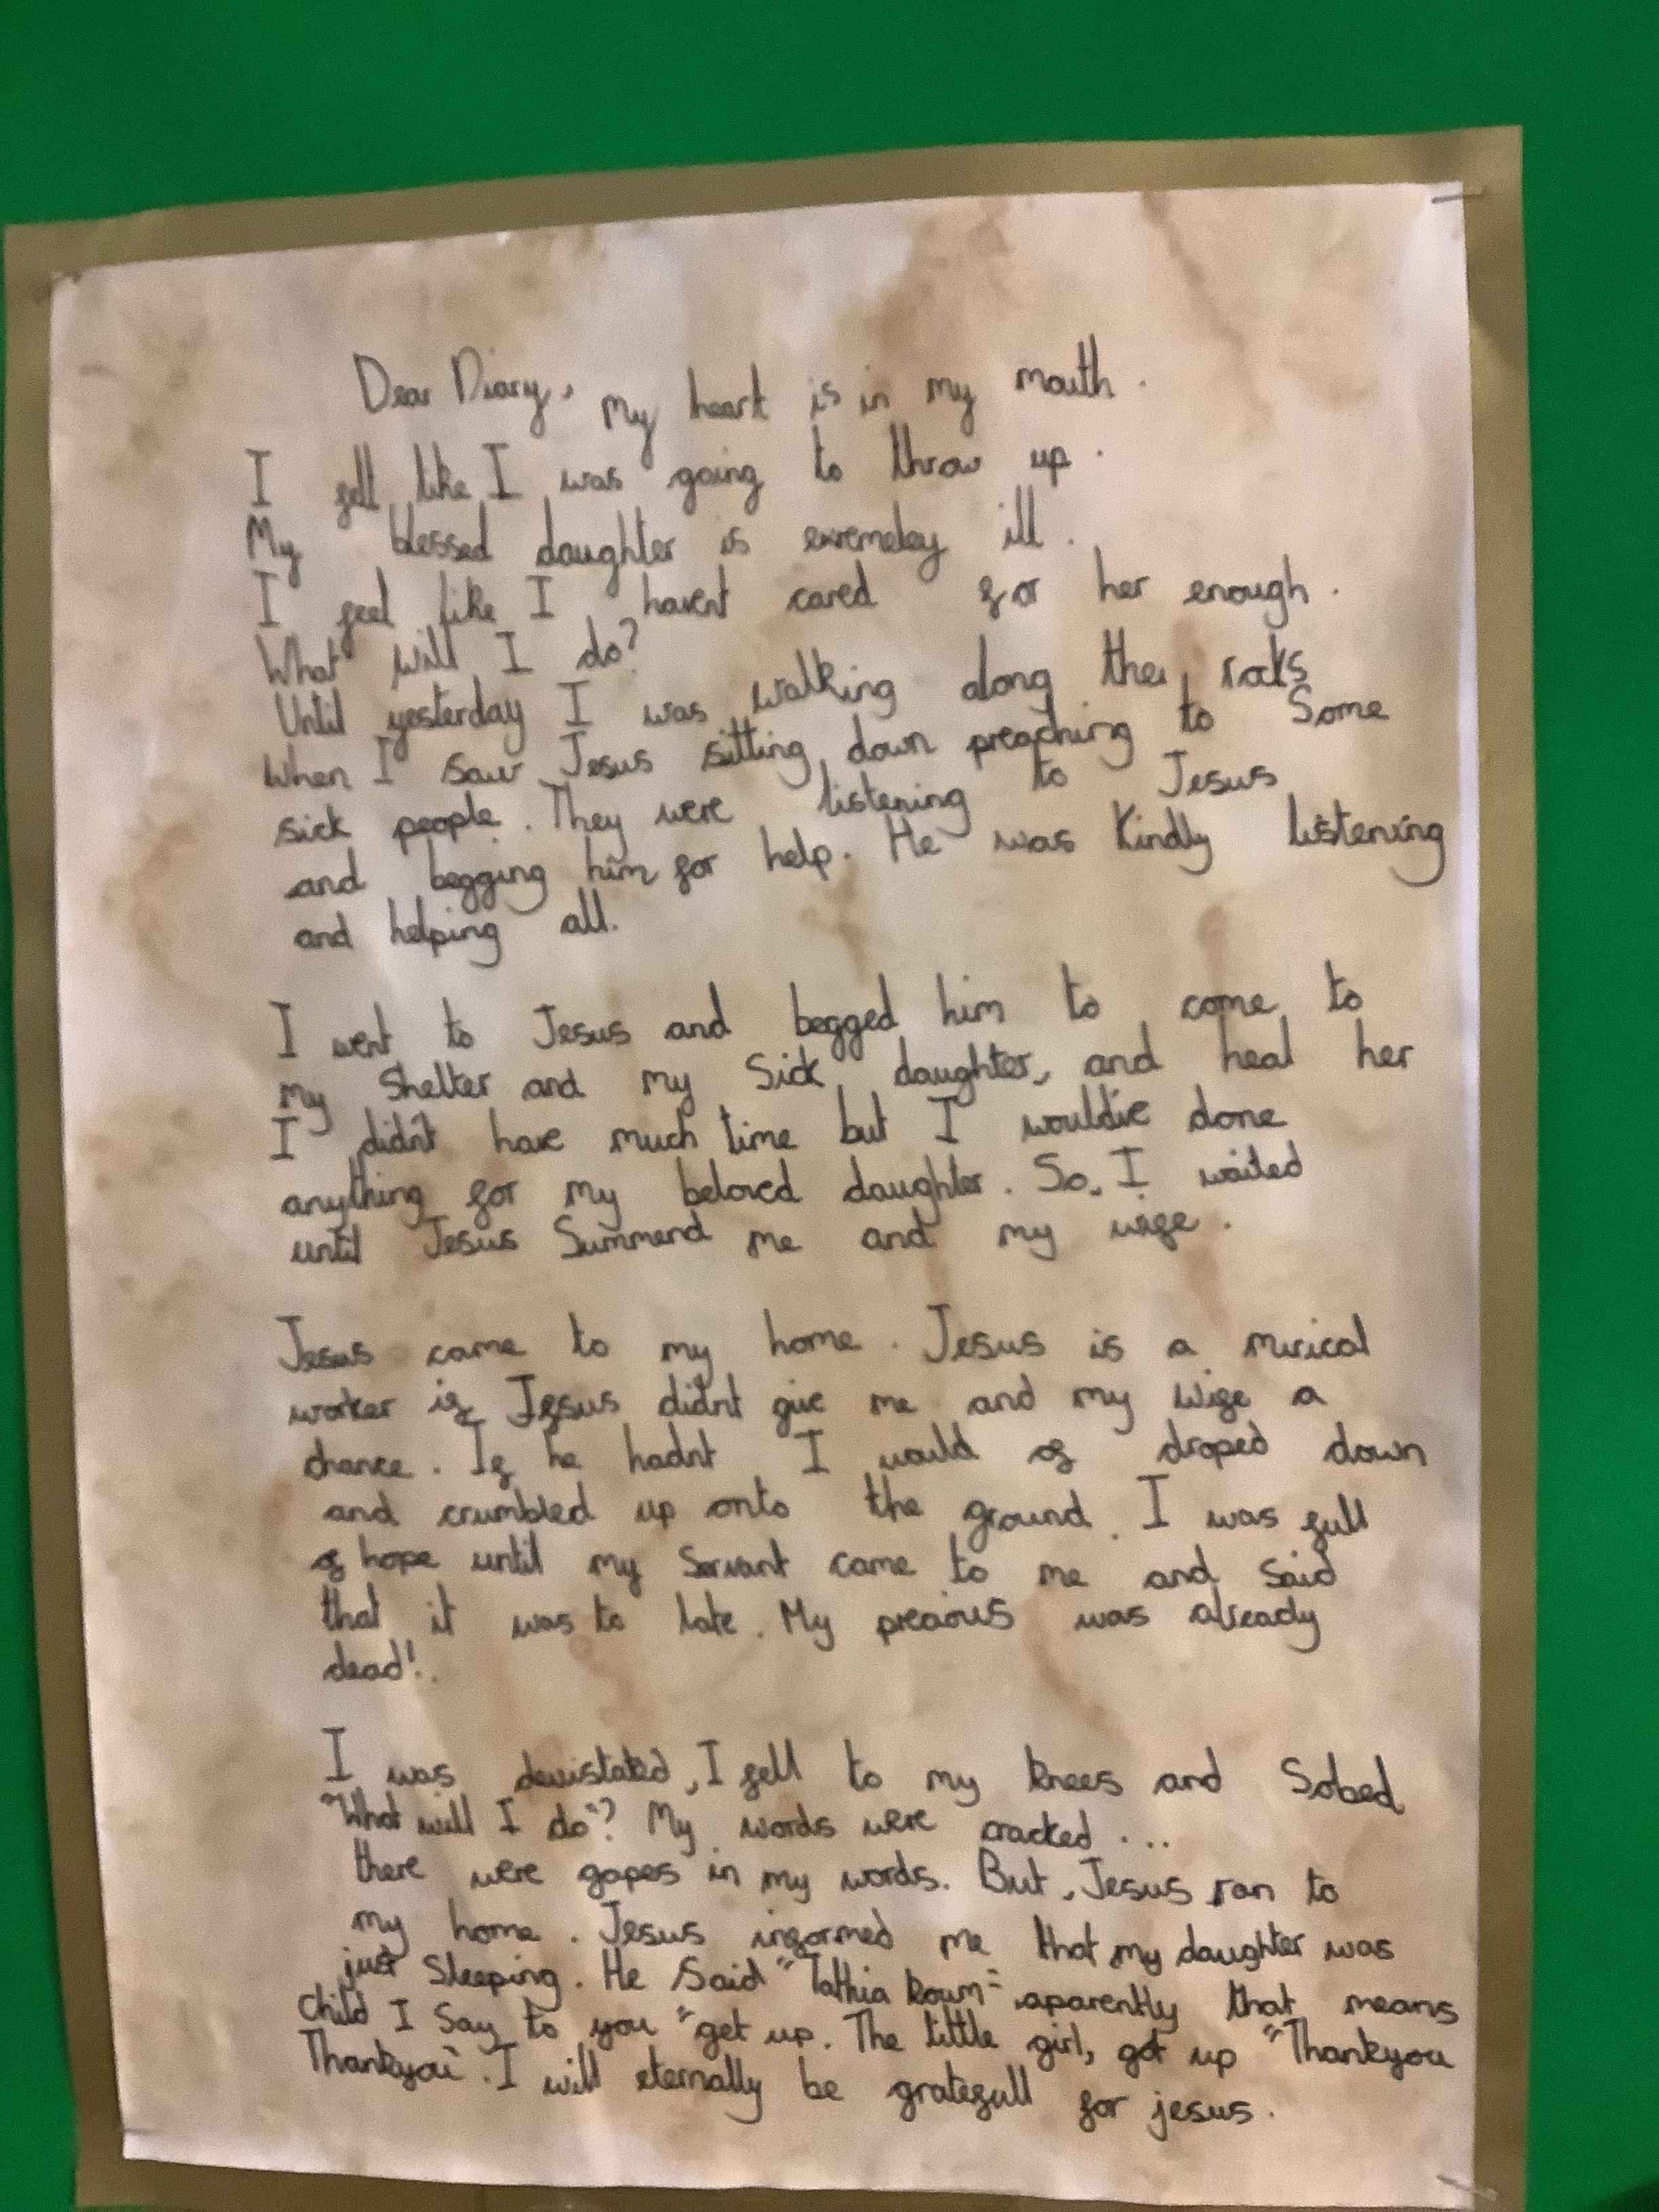 Dear Diary, My heart is in my mouth.
I fell like I was going to throw up.
My blessed daughter is exremeley ill.
I feel like I havent cared for her enough.
What will I do?
Until yesterday I was walking along the rocks
When I saw Jesus sitting down preaching to Some
sick people. They were listening to Jesus
and begging him for help. He was Kindly listening
and helping all.
I went to Jesus and begged him to come to
my Shelter and my Sick daughter, and heal her
I didn't have much time but I would've done
anything for my beloved daughter. So, I waited
until Jesus Summend me and my wife.
Jesus came to my home. Jesus is a mirical
worker if Jesus didn't give me and my wife a
chance. If he hadnt I would of droped down
and crumbled up onto the ground. I was full
of hope until my Servant came to me and Said
that it was to late. My precious was already
dead!.
I was devistated, I fell to my knees and Sobed
"What will I do"? My words were cracked...
there were gapes in my words. But, Jesus ran to
my home. Jesus informed me that my daughter was
just Sleeping. He Said "Tathia koum" aparently that means
child I Say to you "get up. The little girl, got up "Thankyou
Thankyou". I will eternally be gratefull for jesus.